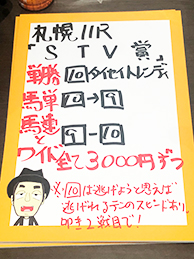 札幌11R
「STV賞」
単勝 10 タイセイトレンディ
馬単 10→9
馬連 9-10
と
ワイド 全て3000円ずつ
※10は逃げようと思えば
逃げれるテンのスピードあり
叩き2戦目で！